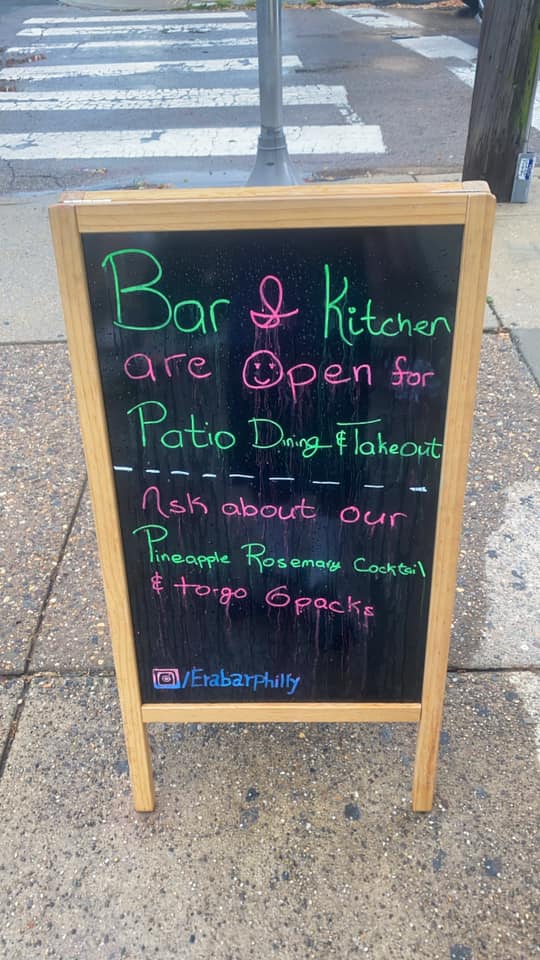 Bar & Kitchen
are Open for
Patio Dining & Takeout
Ask about our
Pineapple Rosemary Cocktail
& to-go 6packs
/Erabarphilly